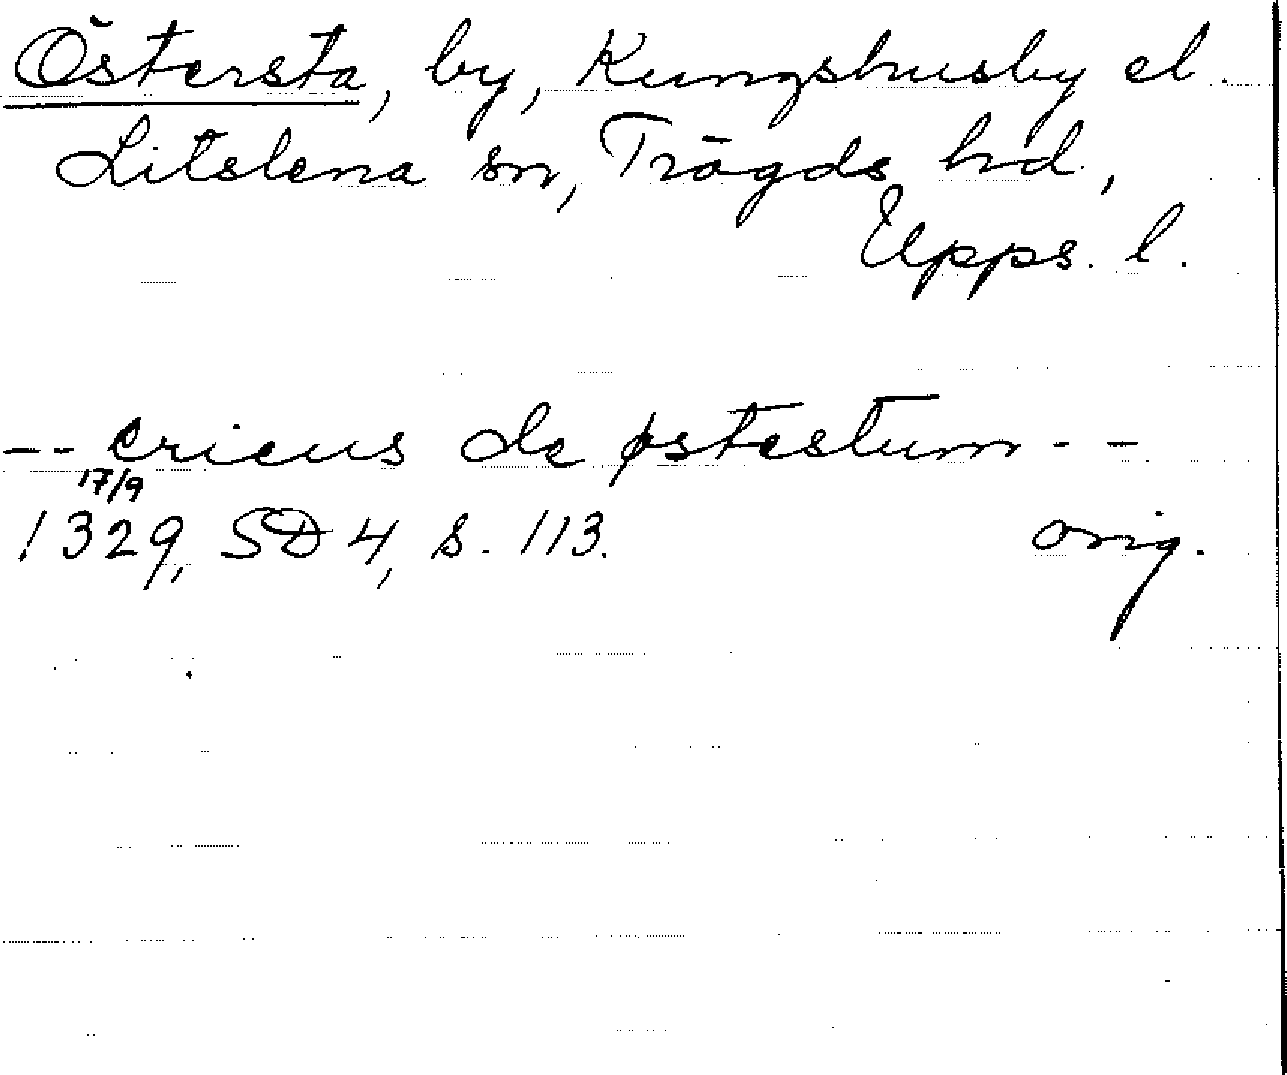 Östersta, by, Kungshusby el.
Litslena sn, Trögds hd,
Upps. l.
-- ericus de østestum --
17/9
1329, SD 4, s. 113. orig.